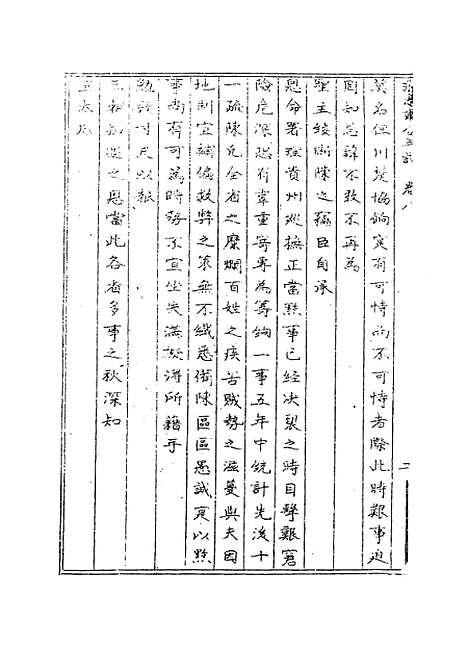 莫名但川楚協餉實有可恃尚不可恃者際此時艱事迫
罔知忌諱不敢不再為
聖主縷晰陳之竊臣自承
恩命署理貴州巡撫正當黔事已經決裂之時目擊艱窘
險危深恐有辜重寄專為籌餉一事五年中統計先後十
一疏陳凡全省之糜爛百姓之疾苦賊勢之滋蔓與夫因
地制宜補偏救弊之策無不纖悉備陳區區愚誠實以黔
事尚有可為時勢不宜坐失滿擬得所藉手
勉效寸尺以報
之恩當此各省多事之秋深知